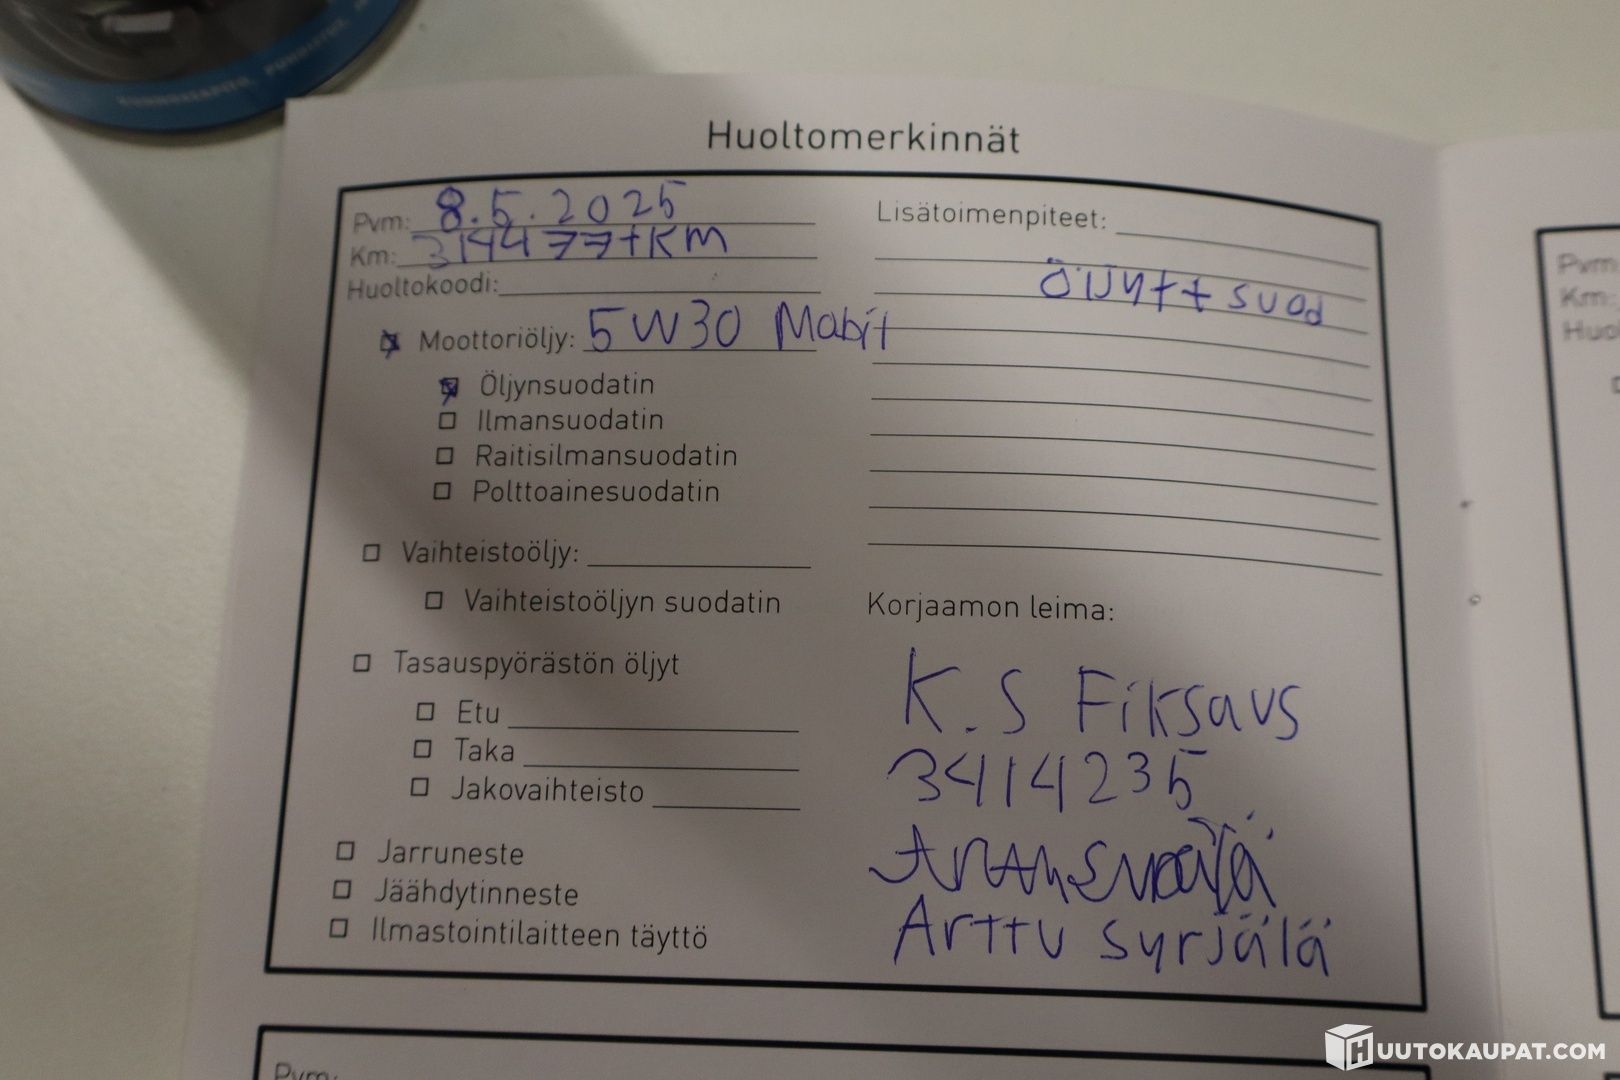 Huoltomerkinnät
Pvm: 8.5.2025
Km: 314477tKM
Huoltokoodi:
Moottoriöljy: 5W30 Mobil
Öljynsuodatin
Ilmansuodatin
Raitisilmansuodatin
Polttoainesuodatin
Vaihteistoöljy:
Vaihteistoöljyn suodatin
Tasauspyörästön öljyt
Etu
Taka
Jakovaihteisto
Jarruneste
Jäähdytinneste
Ilmastointilaitteen täyttö
Lisätoimenpiteet:
Öljyt+suod
Korjaamon leima:
K.S Fiksaus
3414235
Arttu Syrjälä
Pvm:
Pvm
Km:
Huo
HUUTOKAUPAT.COM